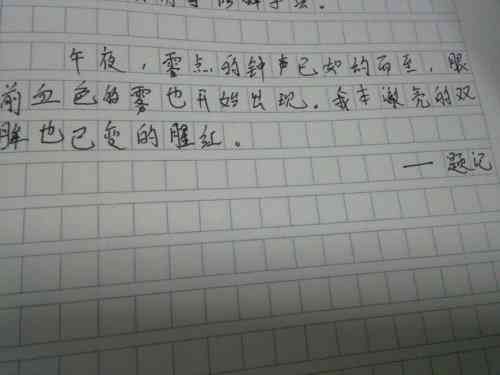 午夜，零点的钟声已如约而至，眼
前血色的雾也开始出现。我本漱亮的双
眸也已变的腥红。
——题记